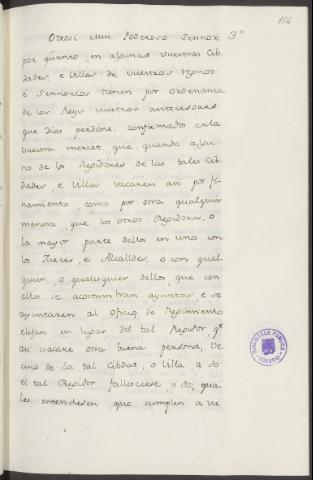 114
Otrosi mui Poderoso Sennor 3º
por quanto, en algunas vuestras Cib
dades, é villas de vuestros regnos
é Sennorios tienen por ordenanza
de los Reyes vuestros antecesores
que dios perdone, confirmados de la
vuestra mercet que quando algu
no de los Regidores de las tales Cib
dades, e villas vacaren asi por fi
namiento, como por otra qualquier
manera, que los otros Regidores, o
la mayor parte dellos en uno con
los Jueces, e Alcalldes, o con qual
quier, o qualesquier dellos, que con
ellos se acostumbran ayuntar, e se
ayuntaren al Oficio de Regimiento
elijan en lugar del tal Regidor, qe
asi vacare otra buena persona, ve
cino de la tal Cibdat, o Villa a do
el tal Regidor fallesciese, o do, qua
les entendiesen que cumplen a vro
BIBLIOTECA PÚBLICA
TOLEDO